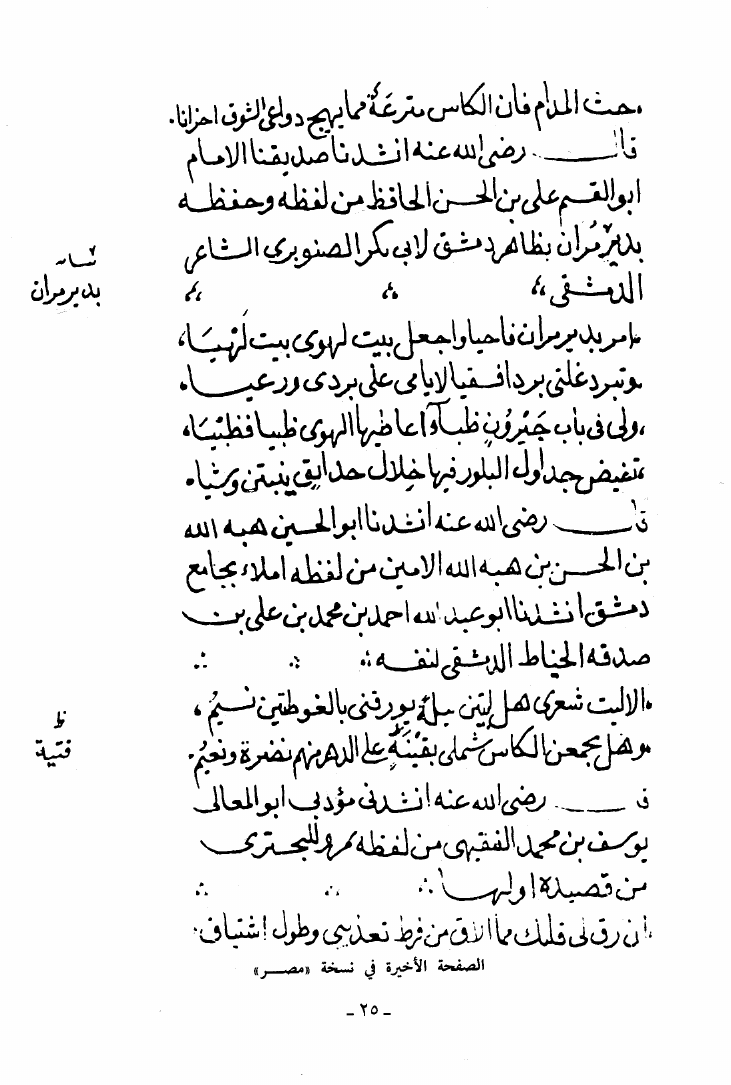 حث المدام فان الكاس مترعة مما يهيج دواعى الشوق احزانا
قال رضى الله عنه انشدنا صديقنا الامام
ابو القسم على بن الحسن الحافظ من لفظه وحفظه
بديرمُران بظاهر دمشق لابى بكر الصنوبرى الشاعر
بديرمران
الدمشقى
امر بديرمران فاحيا واجعل بيت لهوى بيت لَهْيَا
وتبرد غلتى بردا فسقيا لايامى على بردى ورعيا
ولى فى باب جَيْرُونٍ ظباء اعاطيها الهوى ظبيا فظبْيَا
تفيض جداول البلور فيها خِلال حدايق ينبتن وشيا
قال رضى الله عنه انشدنا ابو الحسين هبه الله
بن الحسن بن هبه الله الامين من لفظه املاء بجامع
دمشق انشدنا ابو عبد الله احمد بن محمد بن على بن
صدقه الخياط الدمشقى لنفسه
الا ليت شعرى هل ابيتن ليلة يورقنى بالغوطتين نسيمُ
ظ
وهل يجمعن الكاس شملى بفتية على الدهر منهم نضرة ونعيمُ
فتية
ق رضى الله عنه انشدنى مؤدبى ابو المعالى
يوسف بن محمد الفقيهى من لفظه للبحترى
من قصيدة اولها
ان رق لى قلبك مما الاق من فرط تعذيبى وطول اشتياق
الصفحة الأخيرة في نسخة «مصر»
- ٢٥ -